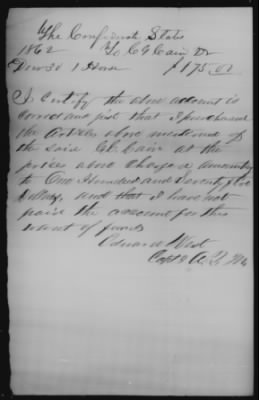 The Confederate States
1862 To C G Cain Dr
Nov 30 1 Horse $175.00
I Certify the above account is
correct and just that I purchased
the articles above mentioned of
the said C G Cain at the
prices above charged amounting
to One Hundred and Seventy five
dollars, and that I have not
paid the account for the
want of funds
Edward West
Capt & A. Q. M.